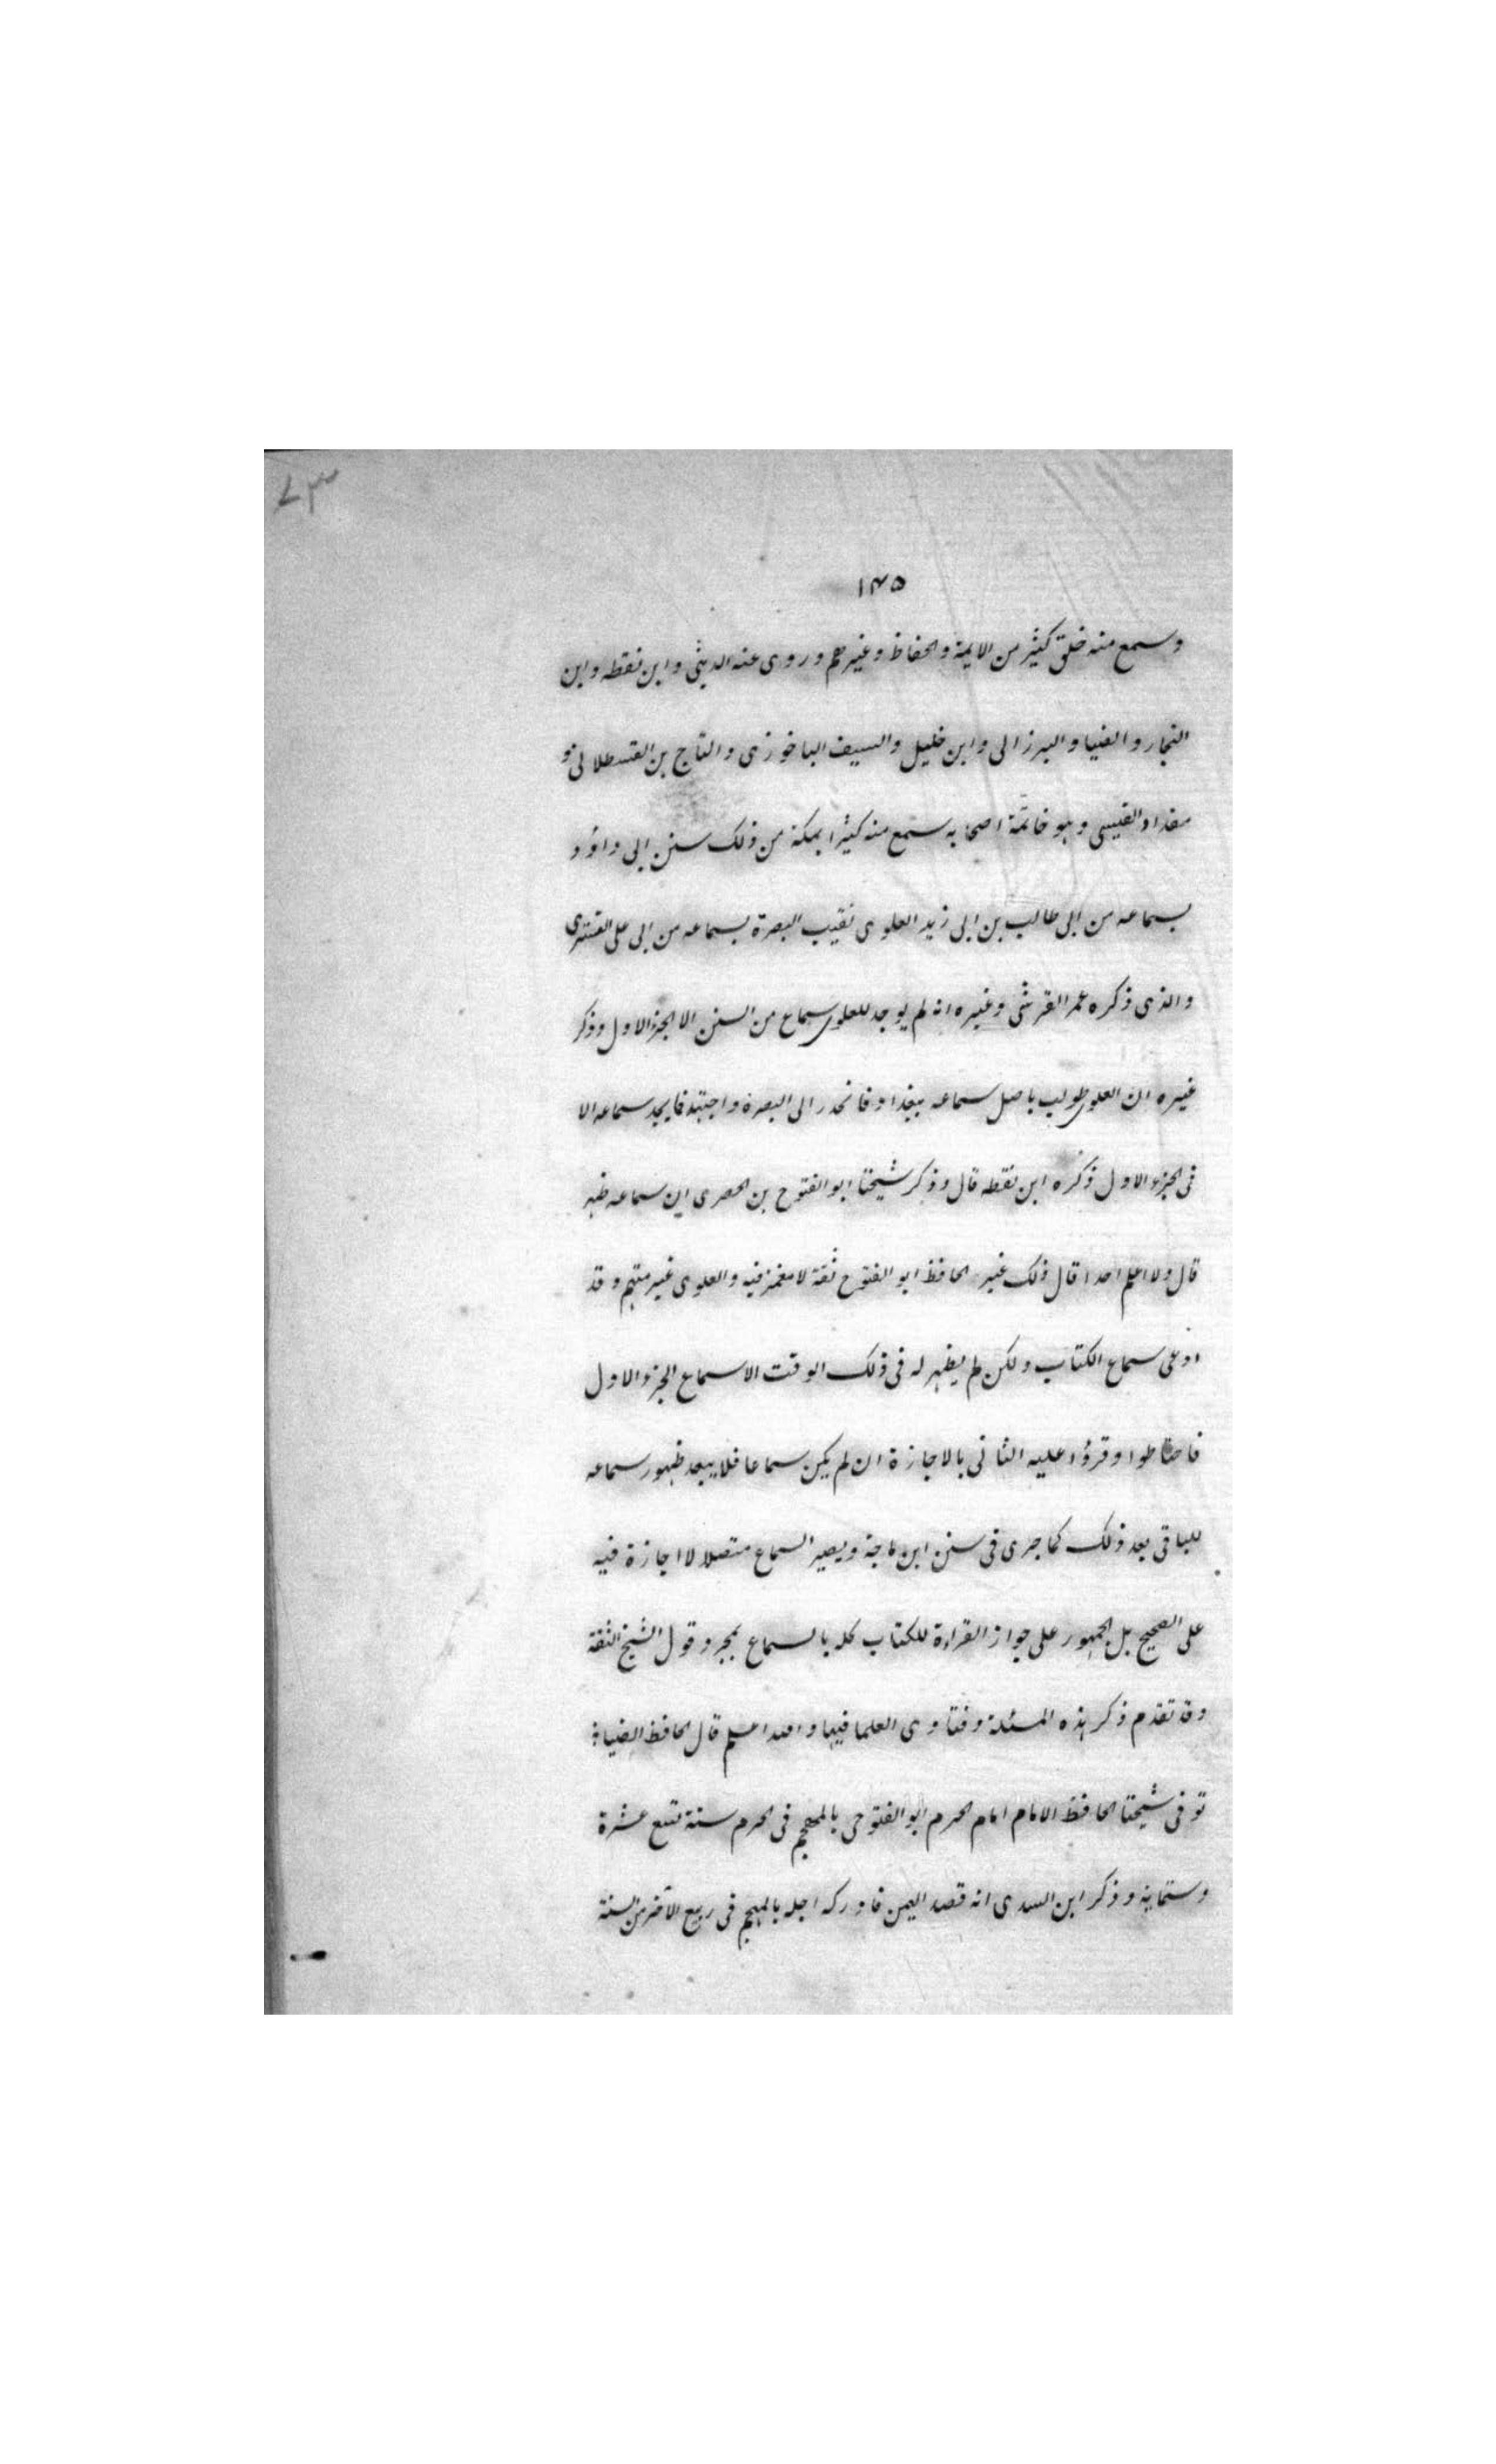 ٧٣
١٣٥
وسمع منه خلق كثير من الايمة والحفاظ وغيرهم وروى عنه الدبيثى وابن نقطه وابن
النجار والضيا والبرزالى وابن خليل والسيف الباخرزى والتاج بن القسطلانى و
مقداد القيسى وهو خاتمة اصحابه سمع منه كثيرا بمكة من ذلك سنن ابى داؤد
بسماعه من ابى طالب بن ابى زيد العلوى نقيب البصرة بسماعه من ابى على التسترى
والذى ذكره عمر القرشى وغيره انه لم يوجد للعلوى سماع من السنن الا الجزء الاول وذكر
غيره ان العلوى طولب باصل سماعه ببغداد فانحدر الى البصرة واجتهد فما يجد سماعه الا
فى الجزء الاول ذكره ابن نقطه قال وذكر شيخنا ابو الفتوح بن الحصرى ان سماعه ظهر
قال ولا اعلم احدا قال ذلك غير الحافظ ابو الفتوح ثقة لا مغمز فيه والعلوى غير متهم وقد
ادعى سماع الكتاب ولكن لم يظهر له فى ذلك الوقت الا سماع الجزء الاول
فاحتاطوا وقرؤا عليه الثانى بالاجازة ان لم يكن سماعا فلا يبعد ظهور سماعه
للباقى بعد ذلك كما جرى فى سنن ابن ماجة ويصير السماع متصلا لا اجازة فيه
على الصحيح بل الجمهور على جواز القراءة للكتاب كله بالسماع بمجرد قول الشيخ الثقة
وقد تقدم ذكر هذه المسئلة وفتاوى العلما فيها والله اعلم قال الحافظ الضيا
توفى شيخنا الحافظ الامام امام الحرم ابو الفتوحى بالمهجم فى المحرم سنة تسع عشرة
وستماية وذكر ابن المسدى انه قصد اليمن فادركه اجله بالمهجم فى ربيع الآخر من سنة